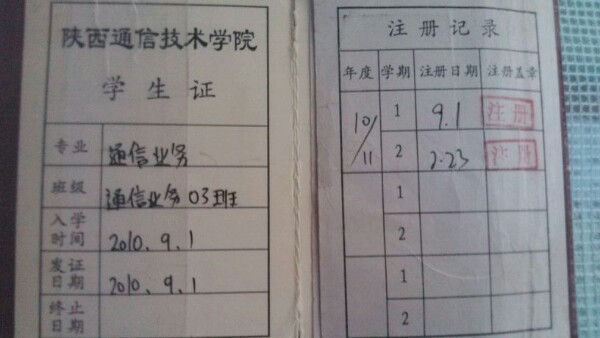 陕西通信技术学院
学生证
专业 通信业务
班级 通信业务03班
入学时间 2010.9.1
发证日期 2010.9.1
终止日期
注册记录
年度 学期 注册日期 注册盖章
10/11 1 9.1 注册
2 2.23 注册
1
2
1
2